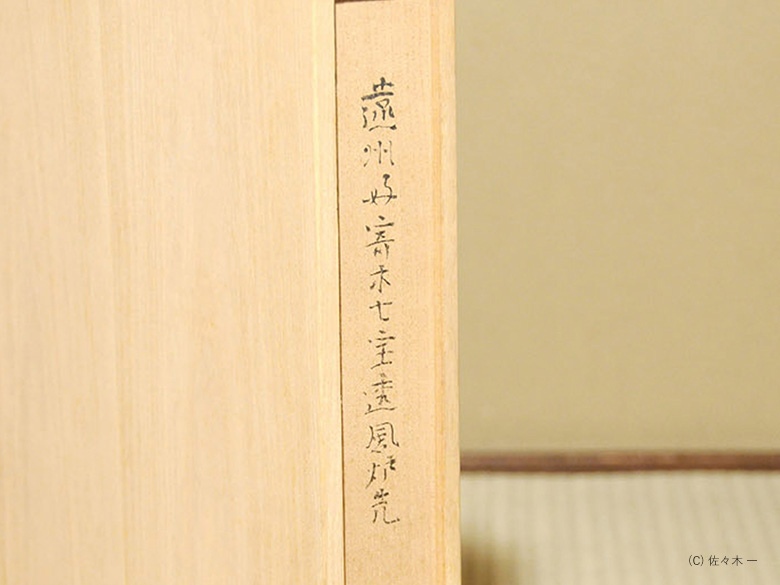 遠州好寄木七宝透風炉先
(C) 佐々木 一